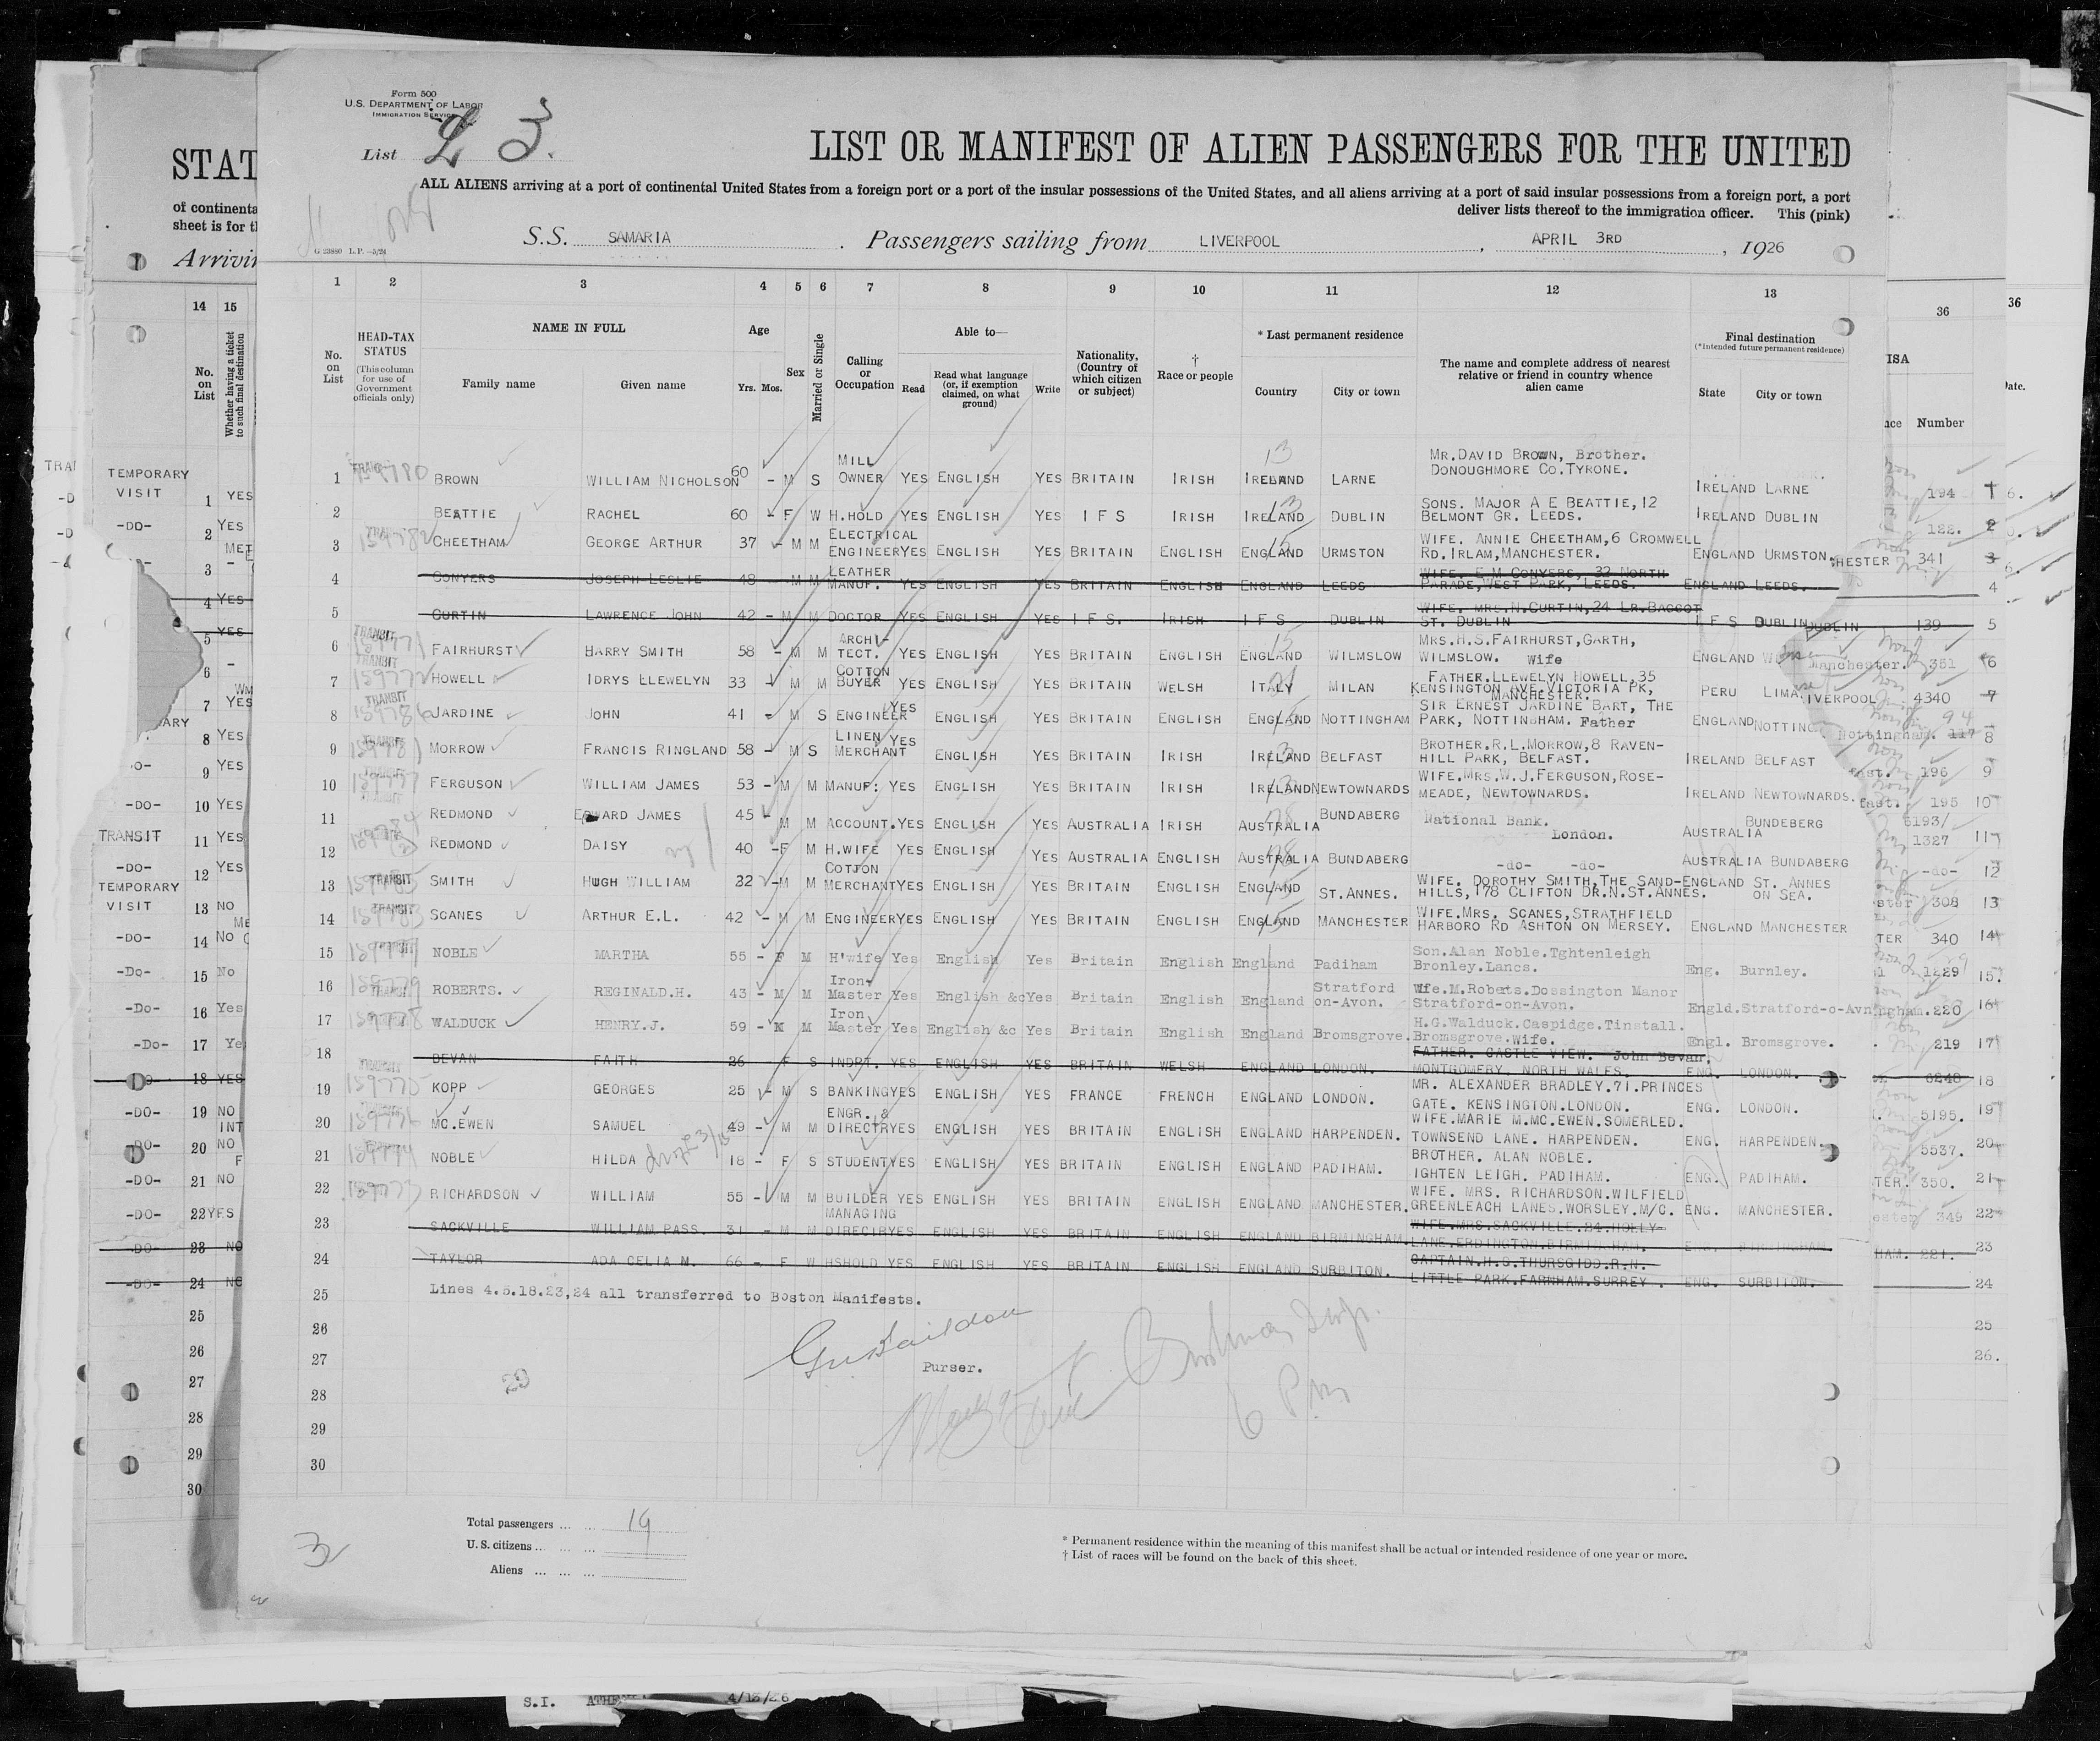 Form 500
U.S. DEPARTMENT OF LABOR
IMMIGRATION SERVICE
List L 3.
LIST OR MANIFEST OF ALIEN PASSENGERS FOR THE UNITED
ALL ALIENS arriving at a port of continental United States from a foreign port or a port of the insular possessions of the United States, and all aliens arriving at a port of said insular possessions from a foreign port, a port
deliver lists thereof to the immigration officer. This (pink)
S.S. SAMARIA . Passengers sailing from LIVERPOOL , APRIL 3RD , 1926
G 23880 L.P.—5/24
1 2 3 4 5 6 7 8 9 10 11 12 13
No. on List
HEAD-TAX STATUS (This column for use of Government officials only)
NAME IN FULL
Family name Given name
Age
Yrs. Mos.
Sex
Married or Single
Calling or Occupation
Able to—
Read Read what language (or, if exemption claimed, on what ground) Write
Nationality, (Country of which citizen or subject)
† Race or people
* Last permanent residence
Country City or town
The name and complete address of nearest relative or friend in country whence alien came
Final destination
(*Intended future permanent residence)
State City or town
1 159780 BROWN WILLIAM NICHOLSON 60 - M S MILL OWNER YES ENGLISH YES BRITAIN IRISH IRELAND LARNE MR.DAVID BROWN, Brother. DONOUGHMORE CO.TYRONE. IRELAND LARNE
2 BEATTIE RACHEL 60 - F W H.HOLD YES ENGLISH YES I F S IRISH IRELAND DUBLIN SONS. MAJOR A E BEATTIE,12 BELMONT GR. LEEDS. IRELAND DUBLIN
3 159782 CHEETHAM GEORGE ARTHUR 37 - M M ELECTRICAL ENGINEER YES ENGLISH YES BRITAIN ENGLISH ENGLAND URMSTON WIFE. ANNIE CHEETHAM,6 CROMWELL RD.IRLAM,MANCHESTER. ENGLAND URMSTON.
4 CONYERS JOSEPH LESLIE 48 - M M LEATHER MANUF. YES ENGLISH YES BRITAIN ENGLISH ENGLAND LEEDS WIFE. E M CONYERS, 32 NORTH PARADE,WEST PARK, LEEDS. ENGLAND LEEDS.
5 CURTIN LAWRENCE JOHN 42 - M M DOCTOR YES ENGLISH YES I F S. IRISH I F S DUBLIN WIFE. MRS.N.CURTIN,24 LR.BAGGOT ST. DUBLIN I F S DUBLIN
6 TRANSIT 159771 FAIRHURST HARRY SMITH 58 - M M ARCHI- TECT. YES ENGLISH YES BRITAIN ENGLISH ENGLAND WILMSLOW MRS.H.S.FAIRHURST,GARTH, WILMSLOW. Wife ENGLAND
7 TRANSIT 159772 HOWELL IDRYS LLEWELYN 33 - M M COTTON BUYER YES ENGLISH YES BRITAIN WELSH ITALY MILAN FATHER.LLEWELYN HOWELL,35 KENSINGTON AVE.VICTORIA PK, MANCHESTER. PERU LIMA.
8 TRANSIT 159786 JARDINE JOHN 41 - M S ENGINEER YES ENGLISH YES BRITAIN ENGLISH ENGLAND NOTTINGHAM SIR ERNEST JARDINE BART, THE PARK, NOTTINGHAM. Father ENGLAND NOTTING
9 TRANSIT 159781 MORROW FRANCIS RINGLAND 58 - M S LINEN MERCHANT YES ENGLISH YES BRITAIN IRISH IRELAND BELFAST BROTHER.R.L.MORROW,8 RAVEN- HILL PARK, BELFAST. IRELAND BELFAST
10 FERGUSON WILLIAM JAMES 53 - M M MANUF: YES ENGLISH YES BRITAIN IRISH IRELAND NEWTOWNARDS WIFE.MRS.W.J.FERGUSON,ROSE- MEADE, NEWTOWNARDS. IRELAND NEWTOWNARDS.
11 REDMOND EDWARD JAMES 45 - M M ACCOUNT. YES ENGLISH YES AUSTRALIA IRISH AUSTRALIA BUNDABERG National Bank. London. AUSTRALIA BUNDEBERG
12 REDMOND DAISY 40 - F M H.WIFE YES ENGLISH YES AUSTRALIA ENGLISH AUSTRALIA BUNDABERG -do- -do- AUSTRALIA BUNDABERG
13 TRANSIT SMITH HUGH WILLIAM 32 - M M COTTON MERCHANT YES ENGLISH YES BRITAIN ENGLISH ENGLAND ST.ANNES. WIFE. DOROTHY SMITH,THE SAND- HILLS, 178 CLIFTON DR.N.ST.ANNES. ENGLAND ST. ANNES ON SEA.
14 TRANSIT 159783 SCANES ARTHUR E.L. 42 - M M ENGINEER YES ENGLISH YES BRITAIN ENGLISH ENGLAND MANCHESTER WIFE.MRS. SCANES,STRATHFIELD HARBORO RD ASHTON ON MERSEY. ENGLAND MANCHESTER
15 NOBLE MARTHA 55 - F M H'wife Yes English Yes Britain English England Padiham Son.Alan Noble.Tghtenleigh Bronley.Lancs. Eng. Burnley.
16 159779 ROBERTS. REGINALD.H. 43 - M M Iron- Master Yes English &c Yes Britain English England Stratford on-Avon. Wfe.M.Robets.Dossington Manor Stratford-on-Avon. Engld.Stratford-o-Avn
17 159778 WALDUCK HENRY.J. 59 - M M Iron Master Yes English &c Yes Britain English England Bromsgrove. H.G.Walduck.Caspidge.Tinstall. Bromsgrove.Wife. Engl. Bromsgrove.
18 BEVAN FAITH 26 F S INDPT. YES ENGLISH YES BRITAIN WELSH ENGLAND LONDON. FATHER. CASTLE VIEW. John Bevan. MONTGOMERY. NORTH WALES. ENG. LONDON.
19 159775 KOPP GEORGES 25 - M S BANKING YES ENGLISH YES FRANCE FRENCH ENGLAND LONDON. MR. ALEXANDER BRADLEY.71.PRINCES GATE. KENSINGTON.LONDON. ENG. LONDON.
20 159776 MC.EWEN SAMUEL 49 - M M ENGR. & DIRECTR YES ENGLISH YES BRITAIN ENGLISH ENGLAND HARPENDEN. WIFE.MARIE M.MC.EWEN.SOMERLED. TOWNSEND LANE. HARPENDEN. ENG. HARPENDEN.
21 159774 NOBLE HILDA 18 - F S STUDENT YES ENGLISH YES BRITAIN ENGLISH ENGLAND PADIHAM. BROTHER. ALAN NOBLE. IGHTEN LEIGH. PADIHAM. ENG. PADIHAM.
22 159773 RICHARDSON WILLIAM 55 - M M BUILDER YES ENGLISH YES BRITAIN ENGLISH ENGLAND MANCHESTER. WIFE. MRS. RICHARDSON.WILFIELD GREENLEACH LANES.WORSLEY.M/C. ENG. MANCHESTER.
23 SACKVILLE WILLIAM PASS. 31 - M M MANAGING DIRECTR YES ENGLISH YES BRITAIN ENGLISH ENGLAND BIRMINGHAM. WIFE.MRS.SACKVILLE.84.HOLLY- LANE.ERDINGTON.BIRMINGHAM. ENG. BIRMINGHAM.
24 TAYLOR ADA CELIA M. 66 - F W HSHOLD YES ENGLISH YES BRITAIN ENGLISH ENGLAND SURBITON. CAPTAIN.H.S.THURSGIDD.R.N. LITTLE PARK.FARNHAM.SURREY. ENG. SURBITON.
25 Lines 4.5.18.23,24 all transferred to Boston Manifests.
26
27 Purser.
28 23
6 PM
29
30
Total passengers ... ... 19
U.S. citizens ... ... ...
Aliens ... ... ...
* Permanent residence within the meaning of this manifest shall be actual or intended residence of one year or more.
† List of races will be found on the back of this sheet.
3
STAT
of continenta
sheet is for t
Arrivin
14 15
No. on List
Whether having a ticket to such final destination
TEMPORARY VISIT 1 YES
-DO- 2 YES
3
4 YES
5 YES
6
7 YES
8 YES
9 YES
-DO- 10 YES
TRANSIT 11 YES
-DO- 12 YES
TEMPORARY VISIT 13 NO
-DO- 14 No
-Do- 15 No
-Do- 16 Yes
-Do- 17 Ye
18 YES
-DO- 19 NO
-DO- 20 NO
-DO- 21 NO
-DO- 22 YES
-DO- 23 NO
-DO- 24 NO
25
26
27
28
29
30
36
ISA
Number
194 1
122. 2
HESTER 341 3
4
DUBLIN 139 5
Manchester. 351 6
IVERPOOL 4340 7
Nottingham. 117 94 8
fast. 196 9
fast. 195 10
6193/ 1327 11
-do- 12
ster 308 13
TER 340 14
1229 15
ngham. 220 16
219 17
6248 18
5195. 19
5537. 20
TER. 350. 21
ester 349 22
HAM. 221. 23
24
25
26.
36
ate.
S.I. ATHE 4/13/26